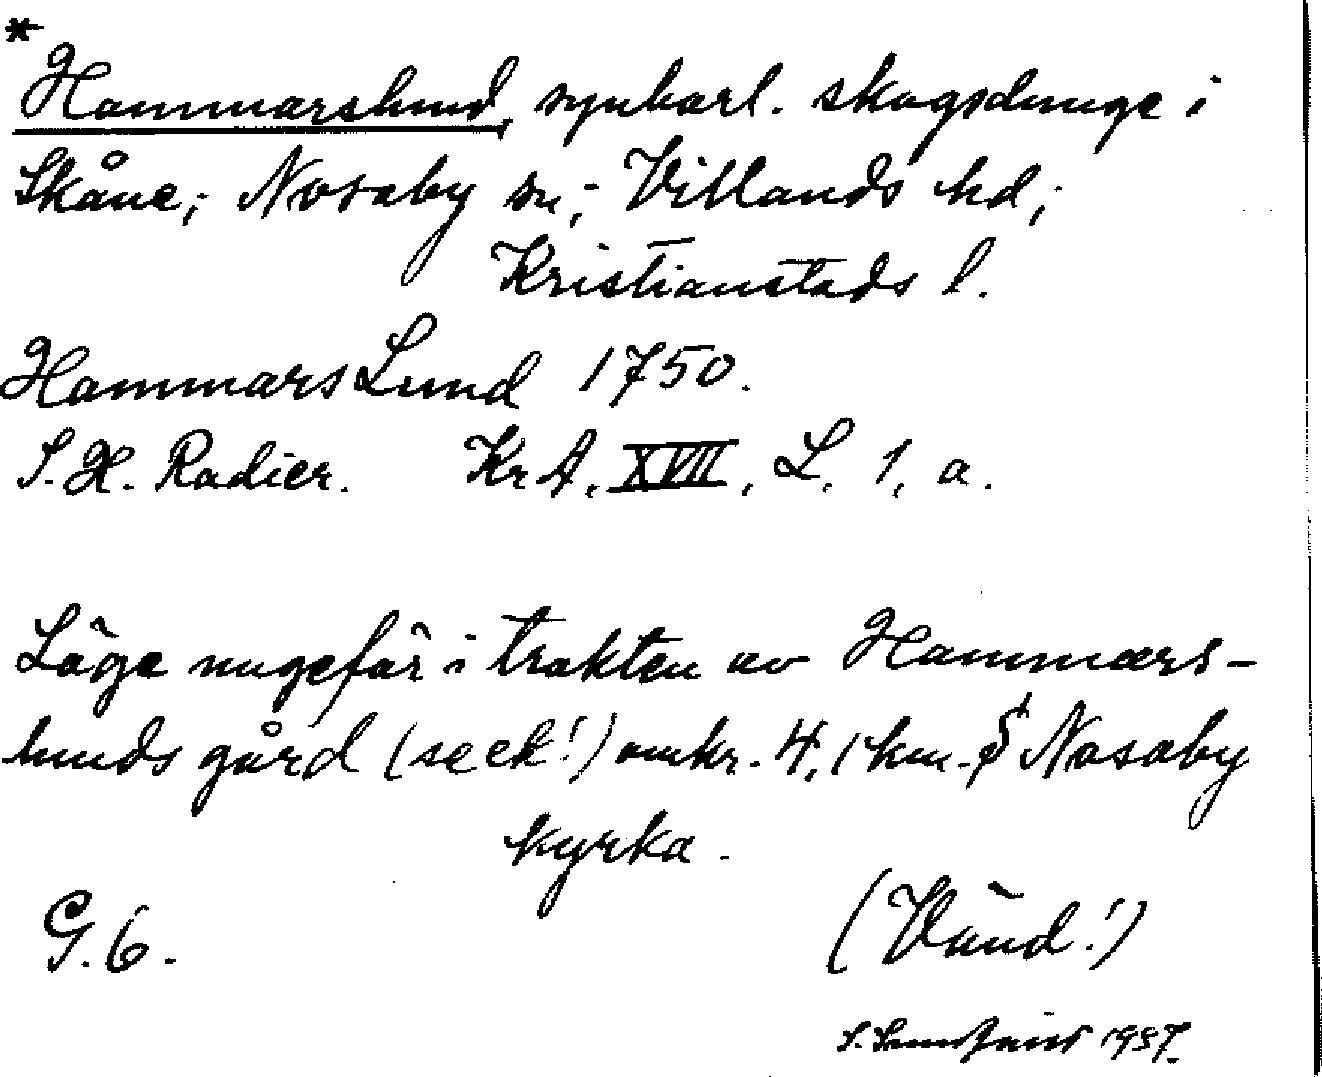 *
Hammarslund, synbarl. skogsdunge i
Skåne; Nosaby sn; Villands hd;
Kristianstads l.
Hammars Lund 1750.
S. H. Radier. KrA, XVII, L, 1, a.
Läge ungefär i trakten av Hammars-
lunds gård (se ek!) omkr. 4,1 km. S Nosaby
kyrka.
G. 6.
(Vänd!)
S. 1937.